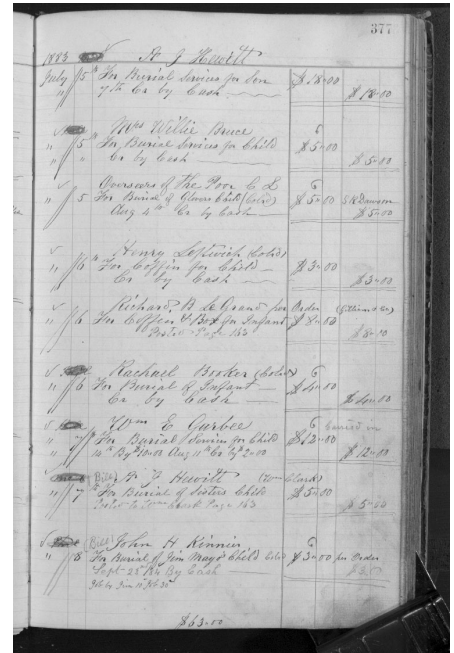 377
1883 A J Hewitt
July 5th For Burial Services for Son $18-00
" 7th Cr by Cash $18-00
Mrs Willie Bruce
" 5th For Burial Services for Child $5-00
" " Cr by Cash $5-00
Overseers of the Poor C L
" 5 For Burial of Child (Cold) $5-00
Aug 4th Cr by Cash $5-00
Henry Leftwich (Cold)
" 6th For Coffin for Child $3-00
" Cr by Cash $3-00
Richard B Le Grand per Order
" 6 For Coffin & Box for Infant $8-00
Posted Page 163 $8-00
Rachael Booker (Cold)
" 6 For Burial of Infant $4-00
Cr by Cash $4-00
Wm E Garbee
" 7th For Burial Services for Child $12-00
14th By $10-00 Aug 11th Cr by 2-00 $12-00
(Bill) A J Hewitt (Wm Clark)
" 7th For Burial of Sisters Child $5-00
Page 163 $5-00
(Bill) John H Kinnier
" 8 For Burial of Jim Mays Child Cold $3-00 per Order
Sept 25 1884 By Cash
$63-00